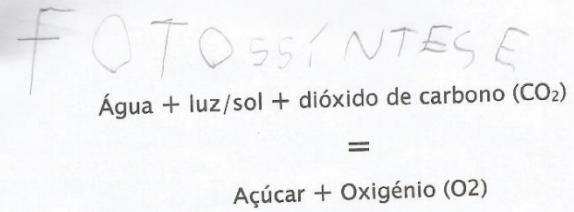 FOTOSSÍNTESE
Água + luz/sol + dióxido de carbono (CO₂)
=
Açúcar + Oxigénio (O2)